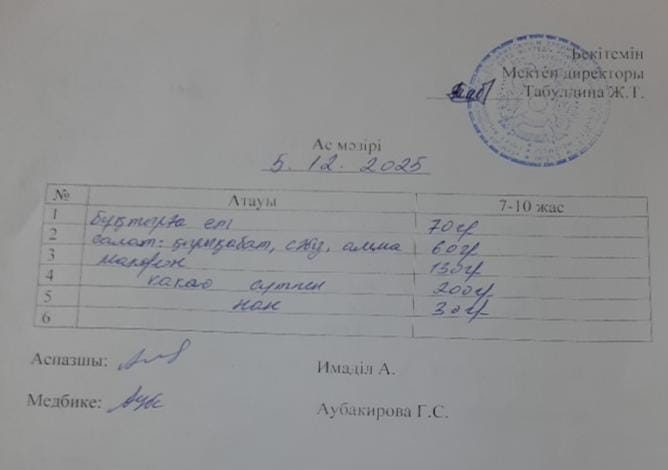 Бекітемін
Мектеп директоры
Табулдина Ж.Т.
Ас мәзірі
5. 12. 2025
№ Атауы 7-10 жас
1 бұқтырға еті 70гр
2 салат: қырыққабат, сәбіз, алма 60гр
3 макарон 150гр
4 какао сүтпен 200гр
5 нан 30гр
6
Аспазшы: Имаділ А.
Медбике: Аубакирова Г.С.